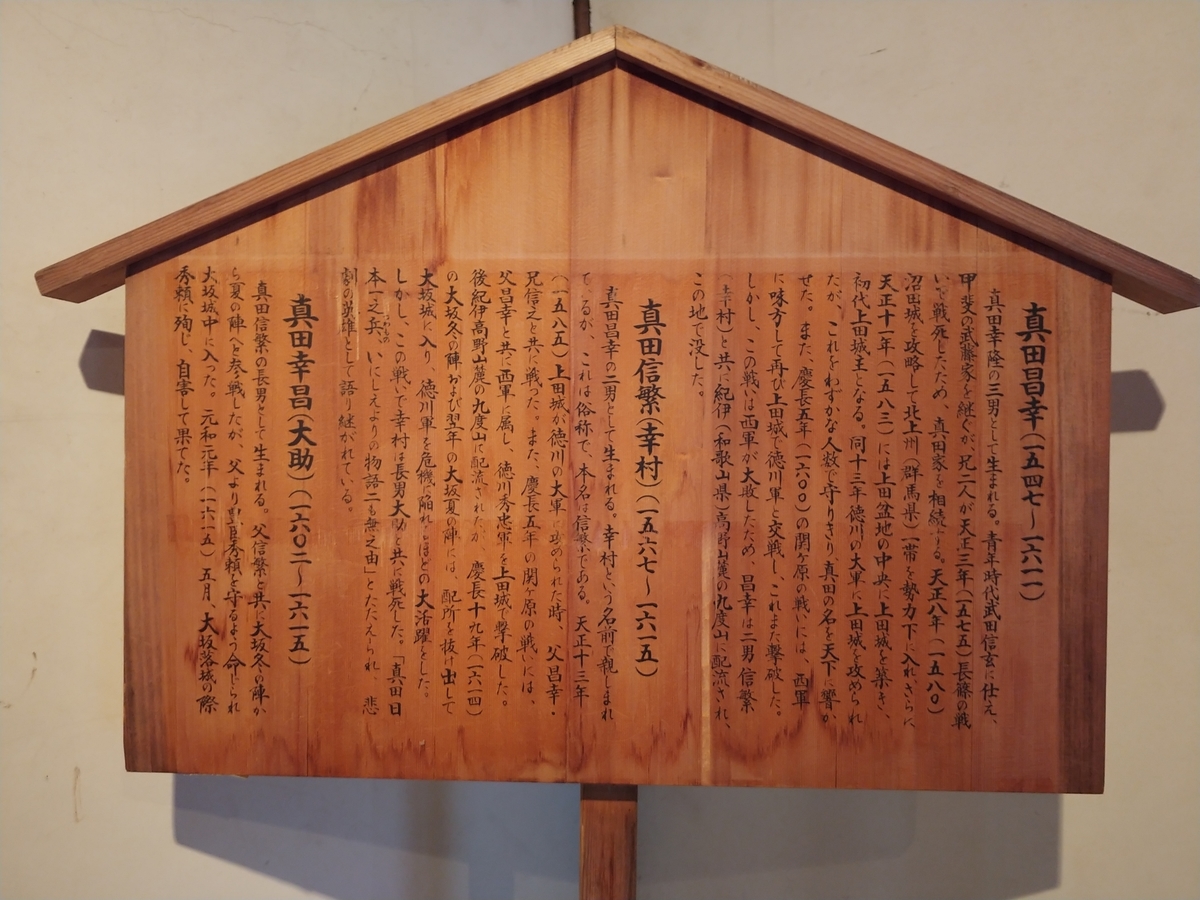 真田昌幸(一五四七〜一六一一)
真田幸隆の三男として生まれる。青年時代武田信玄に仕え、
甲斐の武藤家を継ぐが、兄二人が天正三年(一五七五)長篠の戦
いで戦死したため、真田家を相続する。天正八年(一五八〇)
沼田城を攻略して北上州(群馬県)一帯を勢力下に入れ、さらに
天正十一年(一五八三)には上田盆地の中央に上田城を築き、
初代上田城主となる。同十三年徳川の大軍に上田城を攻められ
たが、これをわずかな人数で守りきり、真田の名を天下に響か
せた。また、慶長五年(一六〇〇)の関ヶ原の戦いには、西軍
に味方して再び上田城で徳川軍と交戦し、これまた撃破した。
しかし、この戦いは西軍が大敗したため、昌幸は二男信繁
(幸村)と共に紀伊(和歌山県)高野山麓の九度山に配流され、
この地で没した。
真田信繁(幸村)(一五六七〜一六一五)
真田昌幸の二男として生まれる。幸村という名前で親しまれ
てるが、これは俗称で、本名は信繁である。天正十三年
(一五八五)上田城が徳川の大軍に攻められた時、父昌幸・
兄信之と共に戦った。また、慶長五年の関ヶ原の戦いには、
父昌幸と共に西軍に属し、徳川秀忠軍を上田城で撃破した。
後紀伊高野山麓の九度山に配流されたが、慶長十九年(一六一四)
の大坂冬の陣および翌年の大坂夏の陣には、配所を抜け出して
大坂城に入り、徳川軍を危機に陥れるほどの大活躍をした。
しかし、この戦いで幸村は長男大助と共に戦死した。「真田日
本一之兵、いにしえよりの物語ニも無之由」とたたえられ、悲
劇の英雄として語り継がれている。
真田幸昌(大助)(一六〇二〜一六一五)
真田信繁の長男として生まれる。父信繁と共に大坂冬の陣か
ら夏の陣へと参戦したが、父より豊臣秀頼を守るよう命じられ
大坂城中に入った。元和元年(一六一五)五月、大坂落城の際
秀頼に殉じ、自害して果てた。